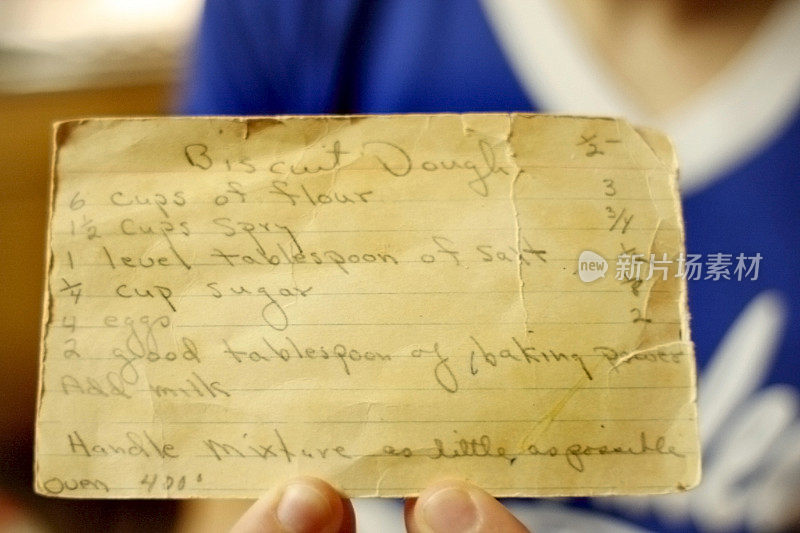 Biscuit Dough ½
6 cups of flour 3
1½ cups Spry ¾
1 level tablespoon of salt ½
¼ cup sugar ⅛
4 eggs 2
2 good tablespoon of baking power
Add milk
Handle mixture as little, as possible
Oven 400°
new 新片场素材